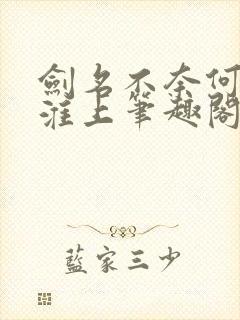 劍名不奈何
淮上筆趣閣
藍家三少